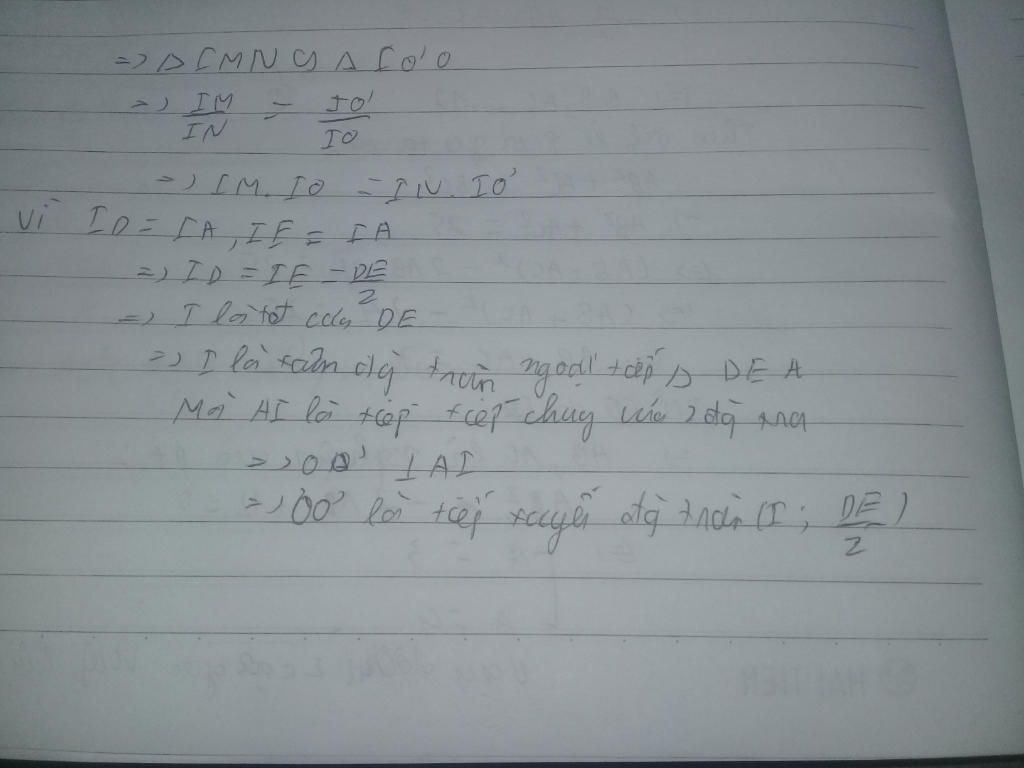 => Δ IMN ∽ Δ IO'O
=> IM/IN = IO'/IO
=> IM.IO = IN.IO'
Vì ID = IA, IE = IA
=> ID = IE = DE/2
=> I là tđ của DE
=> I là tâm đg tròn ngoại tiếp Δ DEA
Mà AI là tiếp tiếp chug của 2 đg tròn
=> OO' ⊥ AI
=> OO' là tiếp tuyến đg tròn (I; DE/2)
HAI TIEN